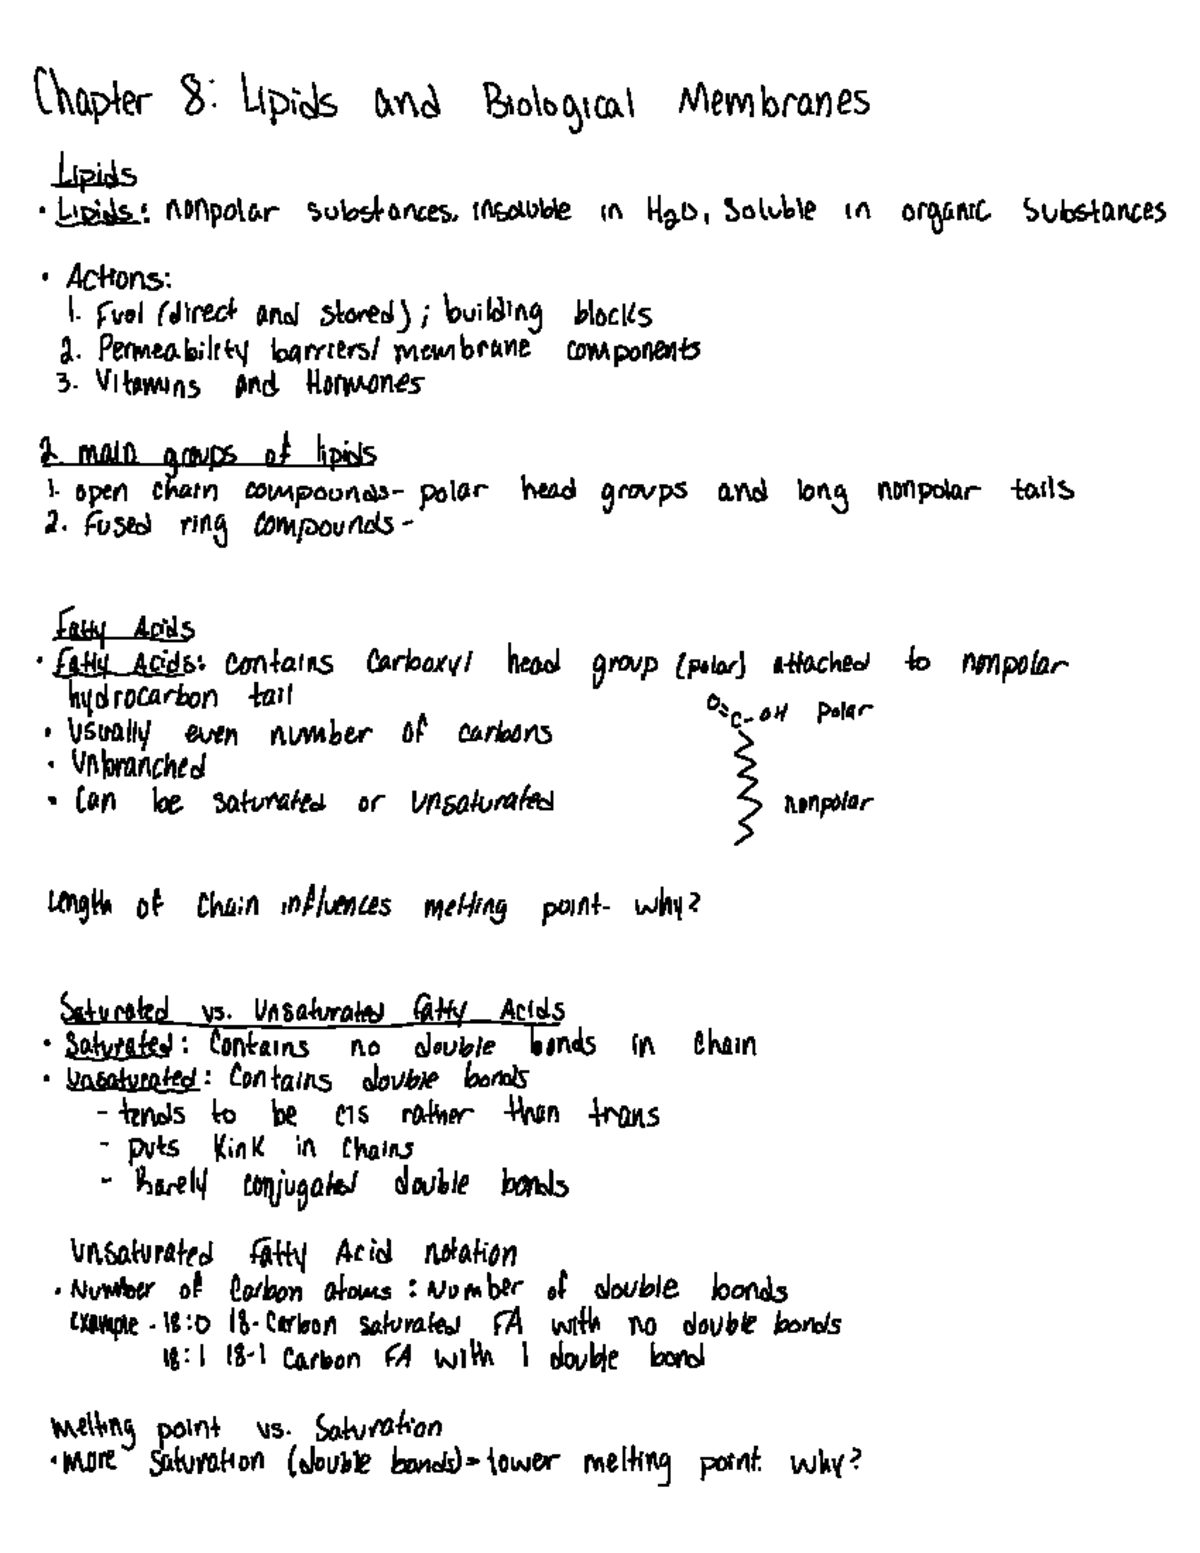 Chapter 8: Lipids and Biological Membranes
Lipids
• Lipids: nonpolar substances, insoluble in H₂O, soluble in organic substances
• Actions:
1. Fuel (direct and stored); building blocks
2. Permeability barriers/ membrane components
3. Vitamins and Hormones
2 main groups of lipids
1. open chain compounds- polar head groups and long nonpolar tails
2. Fused ring compounds-
Fatty Acids
• Fatty Acids: contains carboxyl head group (polar) attached to nonpolar
hydrocarbon tail
O=C-OH polar
• Usually even number of carbons
• Unbranched
• Can be saturated or unsaturated
nonpolar
Length of chain influences melting point- why?
Saturated vs. Unsaturated Fatty Acids
• Saturated: Contains no double bonds in chain
• Unsaturated: Contains double bonds
- tends to be cis rather than trans
- puts kink in chains
- Rarely conjugated double bonds
Unsaturated Fatty Acid notation
• Number of Carbon atoms : Number of double bonds
example - 18:0 18-Carbon saturated FA with no double bonds
18:1 18-1 Carbon FA with 1 double bond
Melting point vs. Saturation
• More saturation (double bonds)= lower melting point. why?